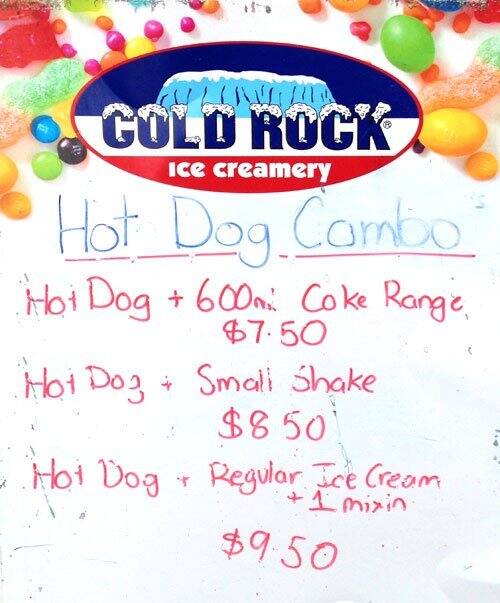 COLD ROCK®
ice creamery
Hot Dog Combo's
Hot Dog + 600ml Coke Range
$7.50
Hot Dog + Small Shake
$8.50
Hot Dog + Regular Ice Cream
+ 1 mixin
$9.50